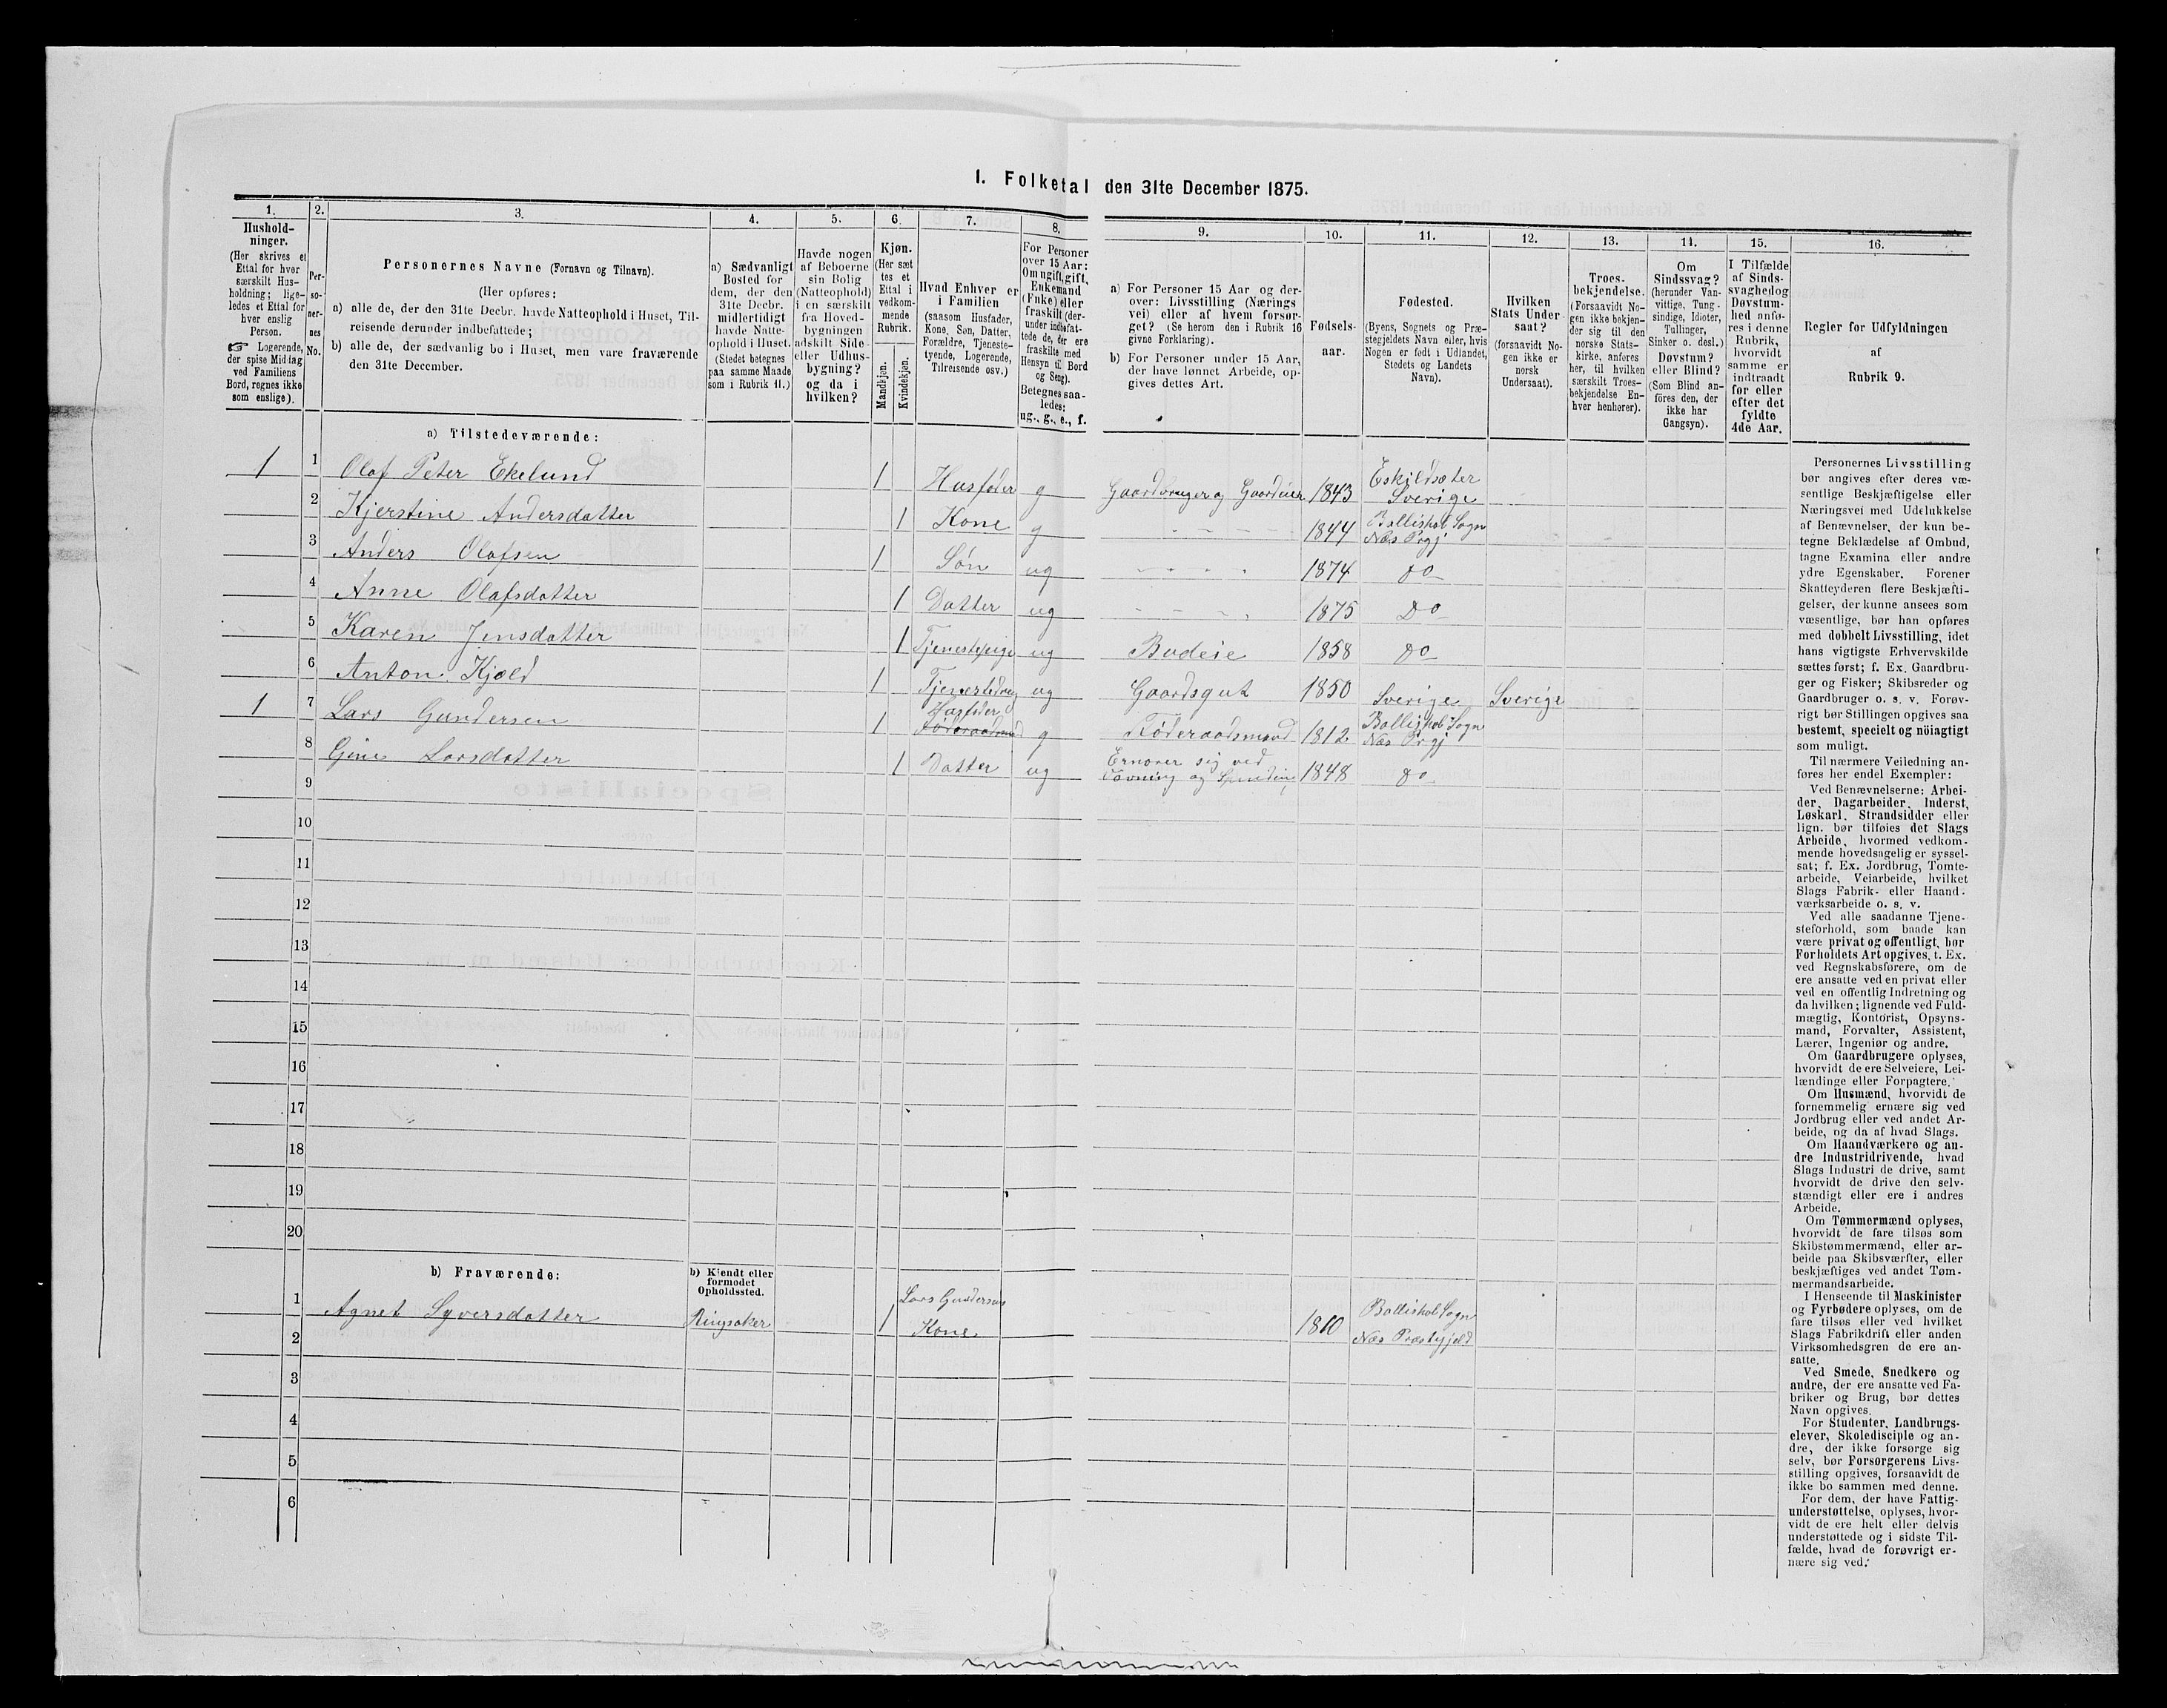 1. Folketal den 31te December 1875.
1. 2. 3. 4. 5. 6 7. 8. 9. 10. 11. 12. 13. 14. 15. 16.
Hushold-
ninger.
(Her skrives et
Ettal for hver
særskilt Hus-
holdning; lige-
ledes et Ettal for
hver enslig
Person.
☞ Logerende,
der spise Middag
ved Familiens
Bord, regnes ikke
som enslige).
Per-
so-
ner-
nes
No.
Personernes Navne (Fornavn og Tilnavn).
(Her opføres:
a) alle de, der den 31te Decbr. havde Natteophold i Huset, Til-
reisende derunder indbefattede;
b) alle de, der sædvanlig bo i Huset, men vare fraværende
den 31te December.
a) Sædvanligt
Bosted for
dem, der den
31te Decbr.
midlertidigt
havde Natte-
ophold i Huset.
(Stedet betegnes
paa samme Maade
som i Rubrik 11.)
Havde nogen
af Beboerne
sin Bolig
(Natteophold)
i en særskilt
fra Hoved-
bygningen
adskilt Side-
eller Udhus-
bygning?
og da i
hvilken?
Kjøn.
(Her sæt
tes et
Ettal i
vedkom-
mende
Rubrik.
Mandkjøn.
Kvindekjøn.
Hvad Enhver er
i Familien
(saasom Husfader,
Kone, Søn, Datter,
Forældre, Tjeneste-
tyende, Logerende,
Tilreisende osv.)
For Personer
over 15 Aar:
Om ugift, gift,
Enkemand
(Enke) eller
fraskilt (der-
under indbefat-
tede de, der ere
fraskilte med
Hensyn til Bord
og Seng).
Betegnes saa-
ledes:
ug., g., e., f.
a) For Personer 15 Aar og der-
over: Livsstilling (Nærings
vei) eller af hvem forsør-
get? (Se herom den i Rubrik 16
givne Forklaring).
b) For Personer under 15 Aar,
der have lønnet Arbeide, op-
gives dettes Art.
Fødsels-
aar.
Fødested.
(Byens, Sognets og Præ-
stegjeldets Navn eller, hvis
Nogen er født i Udlandet,
Stedets og Landets
Navn).
Hvilken
Stats Under
saat?
(forsaavidt No-
gen ikke er
norsk
Undersaat).
Troes-
bekjendelse.
(Forsaavidt No-
gen ikke bekjen-
der sig til den
norske Stats-
kirke, anføres
her, til hvilken
særskilt Troes-
bekjendelse En-
hver henhører).
Om
Sindssvag?
(herunder Van-
vittige, Tung-
sindige, Idioter,
Tullinger,
Sinker o. desl.)
Døvstum?
eller Blind?
(Som Blind an-
föres den, der
ikke har
Gangsyn).
I Tilfælde
af Sinds-
svaghed og
Døvstum-
hed anfø-
res i denne
Rubrik,
hvorvidt
samme er
indtraadt
før eller
efter det
fyldte
4de Aar.
Regler for Udfyldningen
af
Rubrik 9.
a) Tilstedeværende:
1 1 Olaf Peter Ekelund 1 Husfader g Gaardbruger og Gaardeier 1843 Eskildsæter Sverige
2 Kjerstine Andersdatter 1 Kone g 1844 Ballishol Sogn Næs Prgj
3 Anders Olafsen 1 Søn ug 1874 do
4 Anne Olafsdatter 1 Datter ug 1875 Do
5 Karen Jensdatter 1 Tjenestepige ug Budeie 1858 do
6 Anton Kjøld 1 Tjenestedreng ug Gaardsgut 1850 Sverige Sverige
1 7 Lars Gundersen 1 Husfader Føderaadmand g Føderaadsmand 1812 Ballishol Sogn Næs Prgj
8 Gine Larsdatter 1 Datter ug Ernærer sig ved Vævning og Spinding 1848 do
9
10
11
12
13
14
15
16
17
18
19
20
b) Fraværende:
b) Kjendt eller
formodet
Opholdssted.
1 Agnet Syversdatter Ringsaker 1 Lars Gundersens Kone 1810 Ballishol Sogn Næs Præstgjeld
2
3
4
5
6
Personernes Livsstilling
bør angives efter deres væ-
sentlige Beskjæftigelse eller
Næringsvei med Udelukkelse
af Benævnelser, der kun be-
tegne Beklædelse af Ombud,
tagne Examina eller andre
ydre Egenskaber. Forener
Skatteyderen flere Beskjæfti-
gelser, der kunne ansees som
væsentlige, bør han opføres
med dobbelt Livsstilling, idet
hans vigtigste Erhvervskilde
sættes først; f. Ex. Gaardbru-
ger og Fisker; Skibsreder og
Gaardbruger o. s. v. Forøv-
rigt bør Stillingen opgives saa
bestemt, specielt og nöiagtigt
som muligt.
Til nærmere Veiledning an-
føres her endel Exempler:
Ved Benævnelserne: Arbei-
der, Dagarbeider, Inderst,
Løskarl, Strandsidder eller
lign. bør tilføies det Slags
Arbeide, hvormed vedkom-
mende hovedsagelig er syssel-
sat; f. Ex. Jordbrug, Tomte-
arbeide, Veiarbeide, hvilket
Slags Fabrik- eller Haand-
værksarbeide o. s. v.
Ved alle saadanne Tjene-
steforhold, som baade kan
være privat og offentligt, bør
Forholdets Art opgives, t. Ex.
ved Regnskabsførere, om de
ere ansatte ved en privat eller
ved en offentlig Indretning og
da hvilken; lignende ved Fuld-
mægtig, Kontorist, Opsyns-
mand, Forvalter, Assistent,
Lærer, Ingeniør og andre.
Om Gaardbrugere oplyses,
hvorvidt de ere Selveiere, Lei-
lændinge eller Forpagtere.
Om Husmænd, hvorvidt de
fornemmelig ernære sig ved
Jordbrug eller ved andet Ar-
beide, og da af hvad Slags.
Om Haandværkere og an-
dre Industridrivende, hvad
Slags Industri de drive, samt
hvorvidt de drive den selv-
stændigt eller ere i andres
Arbeide.
Om Tømmermænd oplyses,
hvorvidt de fare tilsøs som
Skibstømmermænd, eller ar-
beide paa Skibsværfter, eller
beskjæftiges ved andet Tøm-
mermandsarbeide.
I Henseende til Maskinister
og Fyrbødere oplyses, om de
fare tilsøs eller ved hvilket
Slags Fabrikdrift eller anden
Virksomhedsgren de ere an-
satte.
Ved Smede, Snedkere og
andre, der ere ansatte ved Fa-
briker og Brug, bør dettes
Navn opgives.
For Studenter, Landbrugs-
elever, Skoledisciple og an-
dre, der ikke forsørge sig
selv, bør Forsørgerens Livs-
stilling opgives, forsaavidt de
ikke bo sammen med denne.
For dem, der have Fattig-
understøttelse, oplyses, hvor-
vidt de ere helt eller delvis
understøttede og i sidste Til-
fælde, hvad de forøvrigt er-
nære sig ved.